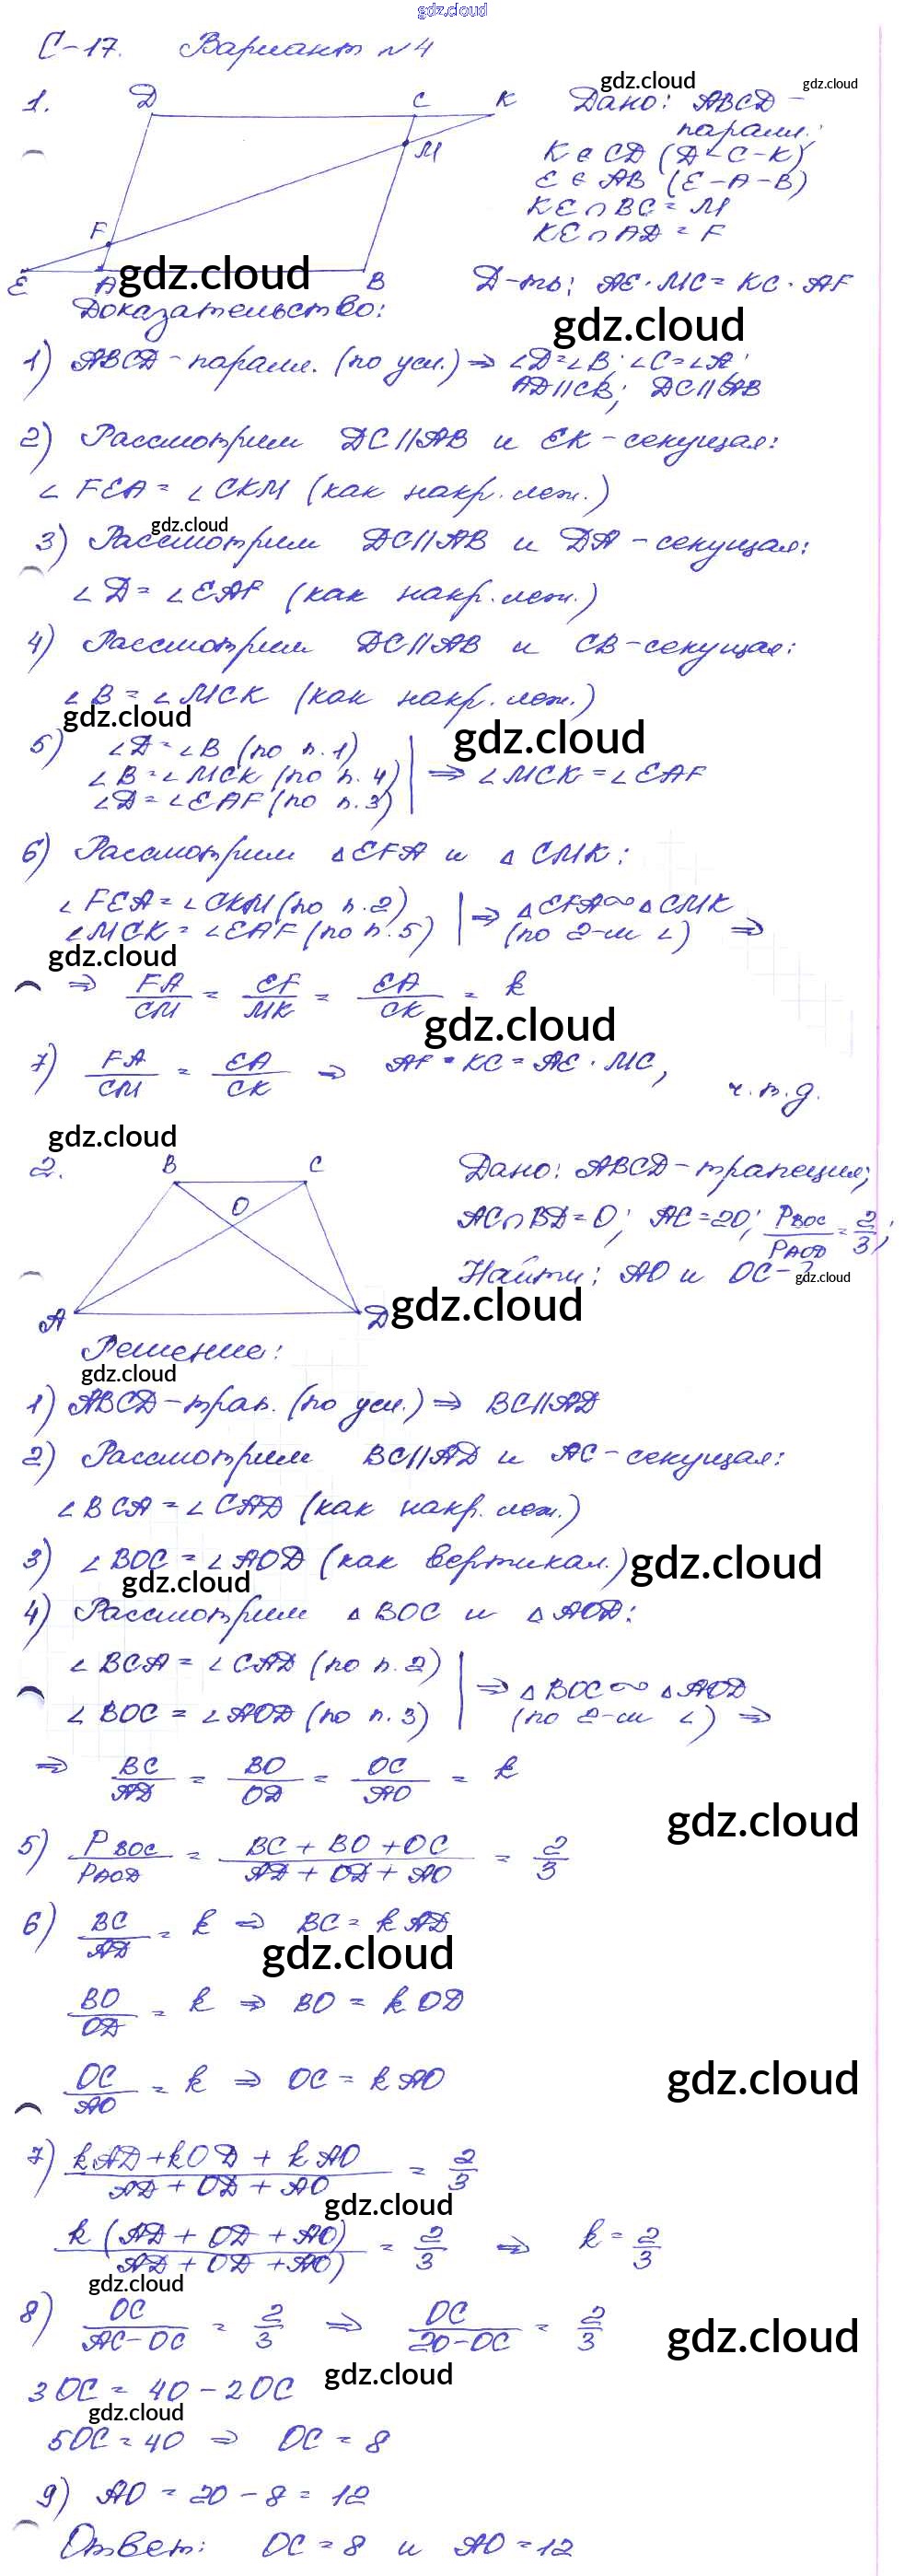 gdz.cloud
С-17. Вариант №4
gdz.cloud gdz.cloud
1. D C K M F E A B
Дано: ABCD - паралл.
K ∈ CD (D-C-K)
E ∈ AB (E-A-B)
KE ∩ BC = M
KE ∩ AD = F
gdz.cloud
Д-ть: AE · MC = KC · AF
Доказательство:
gdz.cloud
1) ABCD - паралл. (по усл.) ⇒ ∠D = ∠B; ∠C = ∠A;
AD || CB; DC || AB
2) Рассмотрим DC || AB и EK - секущая:
∠FEA = ∠CKM (как накр. леж.)
gdz.cloud
3) Рассмотрим DC || AB и DA - секущая:
∠D = ∠EAF (как накр. леж.)
4) Рассмотрим DC || AB и CB - секущая:
∠B = ∠MCK (как накр. леж.)
gdz.cloud
gdz.cloud
5) ∠D = ∠B (по п. 1)
∠B = ∠MCK (по п. 4) | ⇒ ∠MCK = ∠EAF
∠D = ∠EAF (по п. 3)
6) Рассмотрим △EFA и △CMK:
∠FEA = ∠CKM (по п. 2) | ⇒ △EFA ∾ △CMK
∠MCK = ∠EAF (по п. 5) (по 2-м ∠) ⇒
gdz.cloud
⇒ FA/CM = EF/MK = EA/CK = k
gdz.cloud
7) FA/CM = EA/CK ⇒ AF · KC = AE · MC,
ч.т.д.
gdz.cloud
2. B C O A D
Дано: ABCD - трапеция;
AC ∩ BD = O; AC = 20; P BOC/P AOD = 2/3;
Найти: AO и OC - ?
gdz.cloud
gdz.cloud
Решение:
gdz.cloud
1) ABCD - трап. (по усл.) ⇒ BC || AD
2) Рассмотрим BC || AD и AC - секущая:
∠BCA = ∠CAD (как накр. леж.)
3) ∠BOC = ∠AOD (как вертикал.)
gdz.cloud
gdz.cloud
4) Рассмотрим △BOC и △AOD:
∠BCA = ∠CAD (по п. 2) | ⇒ △BOC ∾ △AOD
∠BOC = ∠AOD (по п. 3) (по 2-м ∠) ⇒
⇒ BC/AD = BO/OD = OC/AO = k
gdz.cloud
5) P BOC/P AOD = BC + BO + OC/AD + OD + AO = 2/3
6) BC/AD = k ⇒ BC = k AD
gdz.cloud
BO/OD = k ⇒ BO = k OD
gdz.cloud
OC/AO = k ⇒ OC = k AO
7) kAD + kOD + kAO/AD + OD + AO = 2/3
gdz.cloud
k (AD + OD + AO)/AD + OD + AO) = 2/3 ⇒ k = 2/3
gdz.cloud
8) OC/AC - OC = 2/3 ⇒ OC/20 - OC = 2/3
gdz.cloud
gdz.cloud
3OC = 40 - 2OC
gdz.cloud
5OC = 40 ⇒ OC = 8
9) AO = 20 - 8 = 12
Ответ: OC = 8 и AO = 12